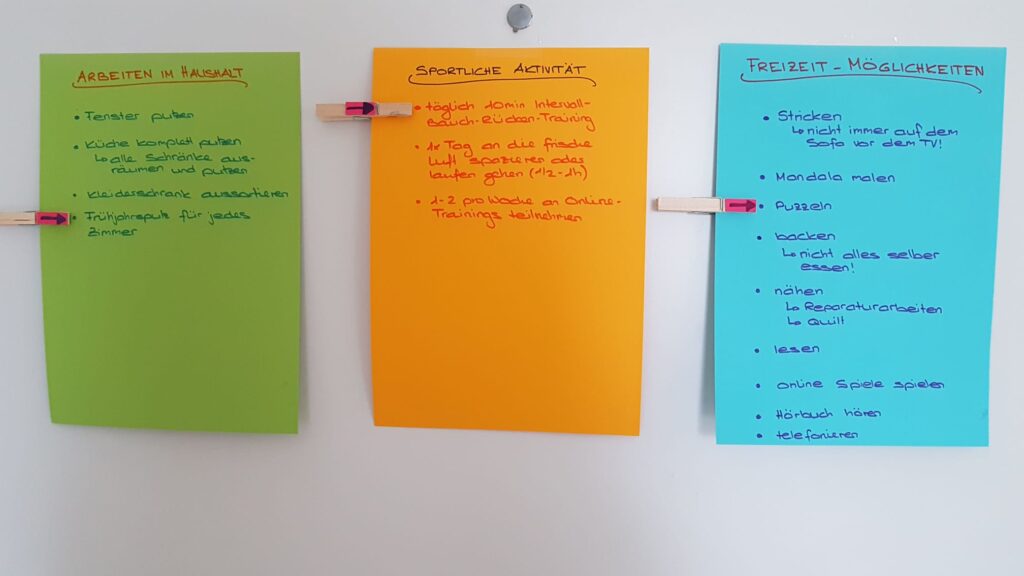 ARBEITEN IM HAUSHALT
• Fenster putzen
• Küche komplett putzen
↳ alle Schränke aus-
räumen und putzen
• Kleiderschrank aussortieren
• Frühjahrsputz für jedes
Zimmer
SPORTLICHE AKTIVITÄT
• täglich 10min Intervall-
Bauch-Rücken-Training
• 1x Tag an die frische
Luft spazieren oder
laufen gehen (1/2-1h)
• 1-2 pro Woche an Online-
Trainings teilnehmen
FREIZEIT-MÖGLICHKEITEN
• Stricken
↳ nicht immer auf dem
Sofa vor dem TV!
• Mandala malen
• Puzzeln
• backen
↳ nicht alles selber
essen!
• nähen
↳ Reparaturarbeiten
↳ Quilt
• lesen
• online Spiele spielen
• Hörbuch hören
• telefonieren